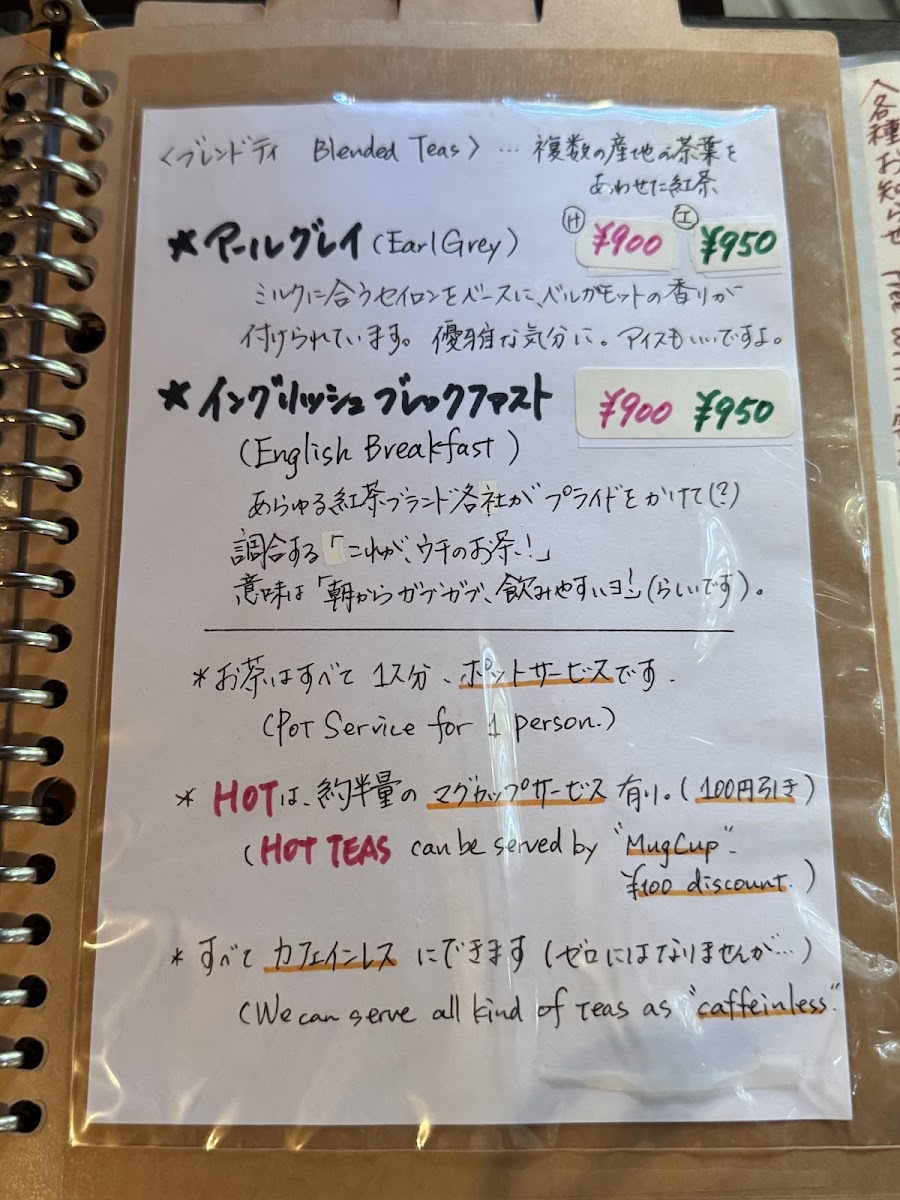 〈ブレンドティ Blended Teas〉… 複数の産地の茶葉を
あわせた紅茶
★アールグレイ(Earl Grey) Ⓗ ¥900 Ⓘ ¥950
ミルクに合うセイロンをベースに、ベルガモットの香りが
付けられています。優雅な気分に。アイスもいいですよ。
★イングリッシュブレックファスト ¥900 ¥950
(English Breakfast)
あらゆる紅茶ブランド各社が プライドをかけて(?)
調合する「これが、ウチのお茶!」
意味は「朝からガブガブ、飲みやすいヨ!」(らしいです)。
*お茶はすべて 1人分、ポットサービスです.
(Pot Service for 1 person.)
* HOTは、約半量の マグカップサービス 有り。(100円引き)
(HOT TEAS can be served by "MugCup".
¥100 discount.)
* すべて カフェインレス にできます (ゼロにはなりませんが…)
(We can serve all kind of Teas as "caffeinless".
各種お知らせ Free Wi-Fi